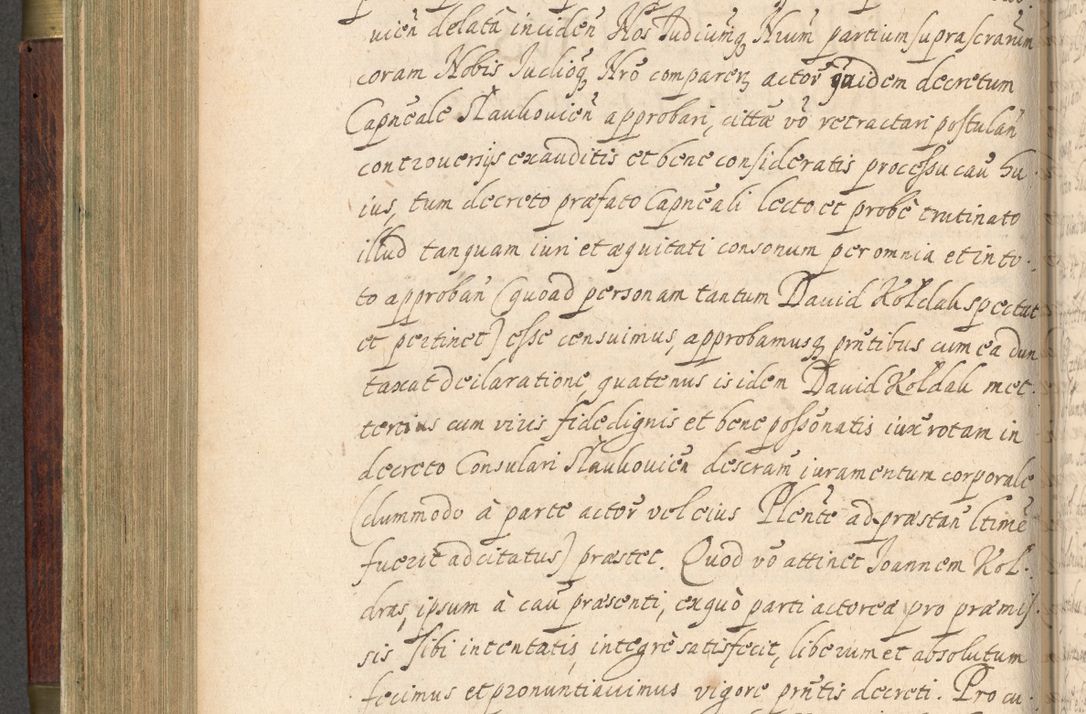 uien̄ delatā inciden̄ Nos Iudiciumq; Nrum̄ partium suprascrarum̄
coram Nobis Iudicioq; Nrō comparen; actor̄ quidem decretum
Capneāle Slaukouien̄ approbari, cittæ vō retractari postulan̄
controuersijs exauditis et bene consideratis processu cau̅ hu-
ius, tum decreto præfato Capneāli lecto et probè trutinato
illud tanquam iuri et æquitati consonum per omnia et in to-
to approban̄ (quoad personam tantum Dauid Koldak spectat
et pertinet) esse censuimus, approbamusq; prn̄tibus cum ea dun
taxat declaratione quatenus is idem Dauid Koldak met-
tertius cum viris fidedignis et bene possōnatis iuxē rotam in
decreto Consulari Slaukouien̄ descram̄ iuramentum corporale
(dummodo à parte actor̄ vel eius Plen̄te ad præstan̄ ltimē
fuerit adcitatus) præstet. Quod vō attinet Joannem Kol-
dras, ipsum à cau̅ præsenti, ex quò parti actoreæ pro præmis-
sis sibi intentatis, integrè satisfecit, liberum et absolutum
fecimus et pronuntiauimus vigore prn̄tis decreti. Pro cu-